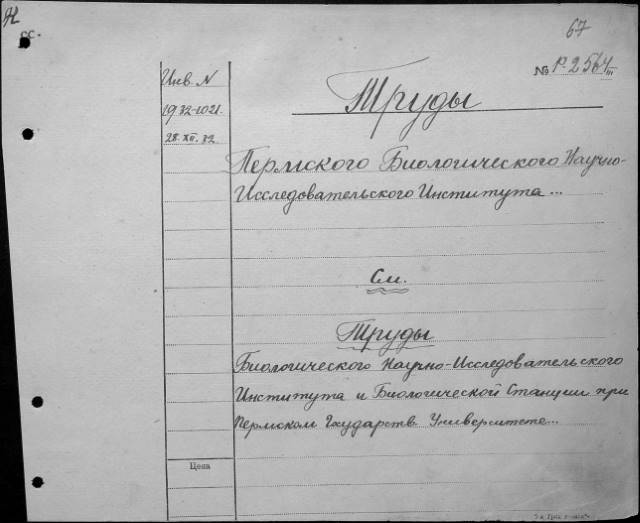 67
№ Р-2564 III
Инв. N
1932-1021
28.XII.32
Труды
Пермского Биологического Научно-
Исследовательского Института...
См.
Труды
Биологического Научно-Исследовательского
Института и Биологической Станции при
Пермском Гхударств Университете...
Цена